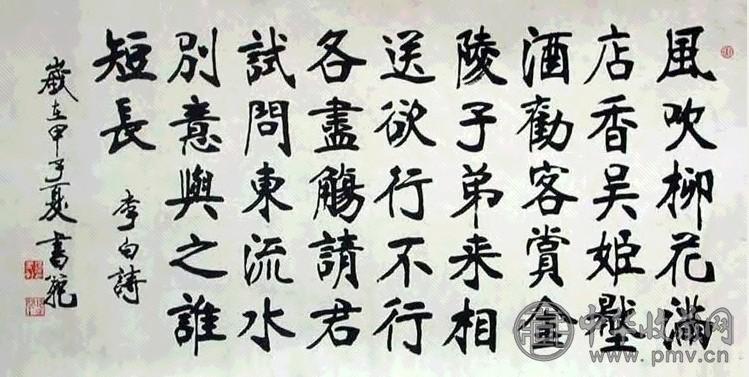 風吹柳花滿
店香吴姬壓
酒勸客賞金
陵子弟来相
送欲行不行
各盡觴請君
試問東流水
別意與之誰
短長
李白詩
歲在甲子夏書
中华收藏网
www.pmv.cn